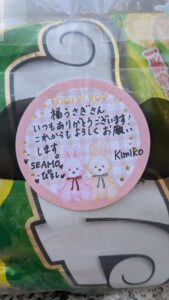 福うさぎさん
いつもありがとうございます!
これからもよろしくお願い
します。
SEAMO
Kimiko